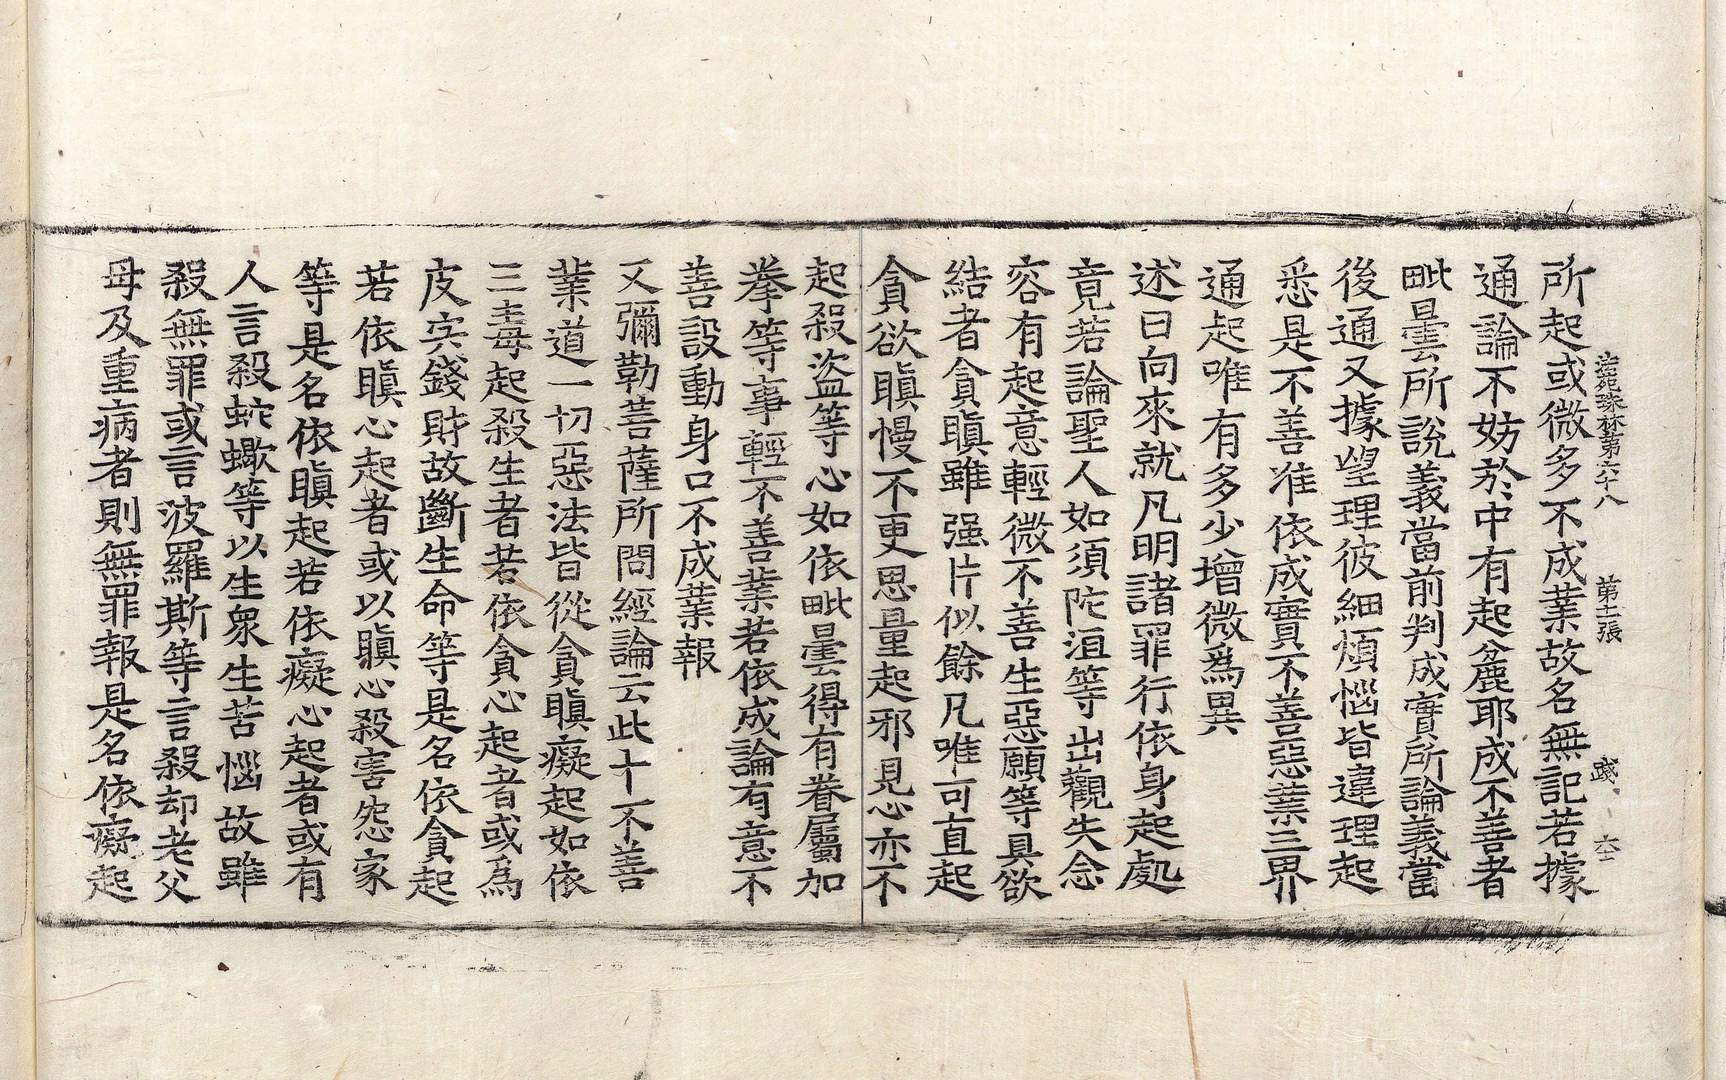 法苑珠林第六十八　第十二張　踐
所起或微多不成業故名無記若據
通論不妨於中有起麁耶成不善者
毗曇所說義當前判成實所論義當
後通又據望理彼細煩惱皆違理起
悉是不善准依成實不善惡業三界
通起唯有多少增微爲異
述曰向來就凡明諸罪行依身起處
竟若論聖人如須陀洹等出觀失念
容有起意輕微不善生惡願等具欲
結者貪瞋雖强片似餘凡唯可直起
貪欲瞋慢不更思量起邪見心亦不
起殺盜等心如依毗曇得有眷屬加
拳等事輕不善業若依成論有意不
善設動身口不成業報
又彌勒菩薩所問經論云此十不善
業道一切惡法皆從貪瞋癡起如依
三毒起殺生者若依貪心起者或爲
皮宍錢財故斷生命等是名依貪起
若依瞋心起者或以瞋心殺害怨家
等是名依瞋起若依癡心起者或有
人言殺蛇蠍等以生衆生苦惱故雖
殺無罪或言波羅斯等言殺却老父
母及重病者則無罪報是名依癡起